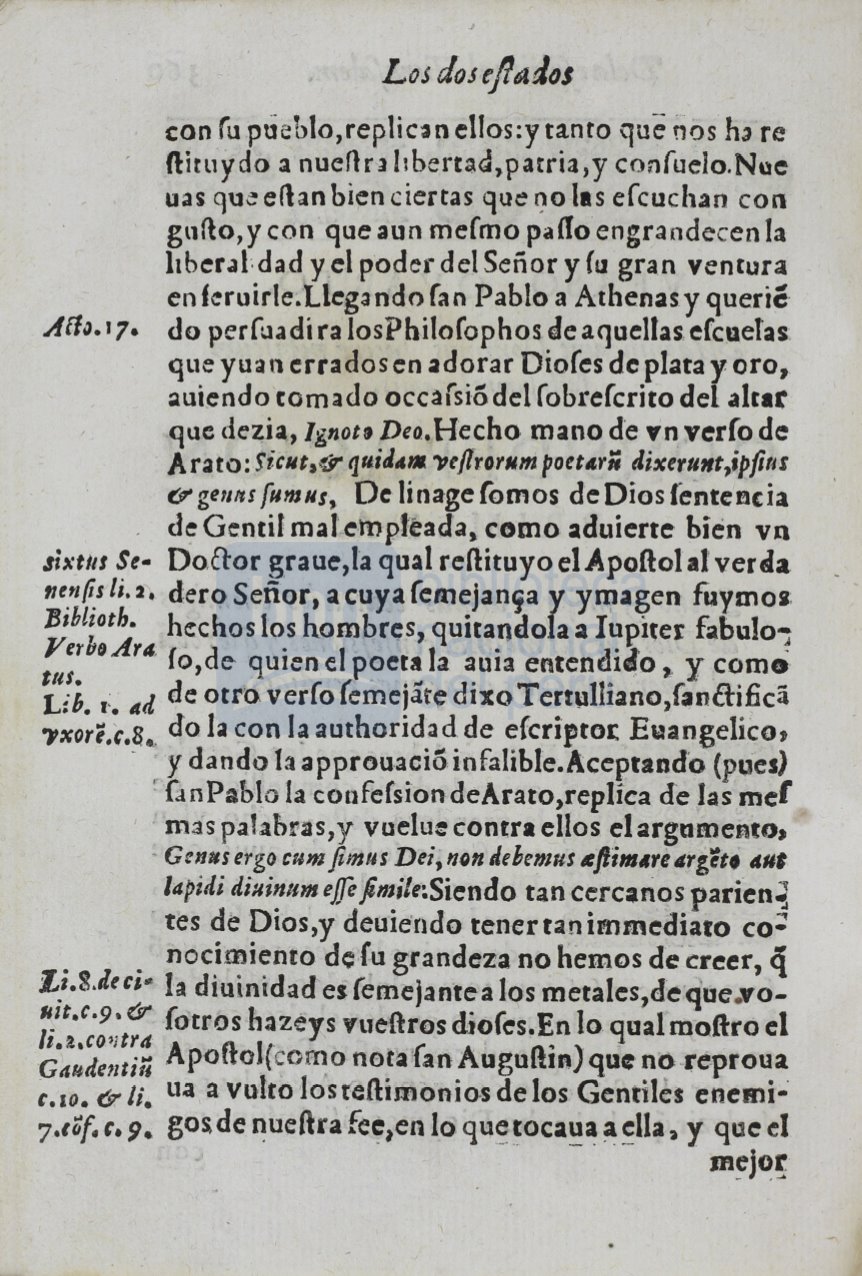 Los dos eſtados
con ſu pueblo, replican ellos: y tanto que nos ha re
ſtituydo a nueſtra libertad, patria, y conſuelo. Nue
uas que eſtan bien ciertas que no las eſcuchan con
guſto, y con que aun meſmo paſſo engrandecen la
liberal dad y el poder del Señor y ſu gran ventura
en ſeruirle. Llegando ſan Pablo a Athenas y queriẽ
Acto. 17.
do perſuadir a los Philoſophos de aquellas eſcuelas
que yuan errados en adorar Dioſes de plata y oro,
auiendo tomado occaſsiõ del ſobreſcrito del altar
que dezia, Ignoto Deo. Hecho mano de vn verſo de
Arato: Sicut, & quidam veſtrorum poetarũ dixerunt, ipſius
& genus ſumus, De linage ſomos de Dios ſentencia
de Gentil mal empleada, como aduierte bien vn
sixtus Se-
nenſis li. 2.
Biblioth.
Verbo Ara
tus.
Lib. 1. ad
vxorẽ. c. 8.
Doctor graue, la qual reſtituyo el Apoſtol al verda
dero Señor, a cuya ſemejança y ymagen fuymos
hechos los hombres, quitandola a Iupiter fabulo-
ſo, de quien el poeta la auia entendido, y como
de otro verſo ſemejãte dixo Tertulliano, ſanctificã
do la con la authoridad de eſcriptor Euangelico,
y dando la approuaciõ infalible. Aceptando (pues)
ſan Pablo la confeſsion de Arato, replica de las meſ
mas palabras, y vuelue contra ellos el argumento,
Genus ergo cum ſimus Dei, non debemus æſtimare argẽto aut
lapidi diuinum eſſe ſimile: Siendo tan cercanos parien-
tes de Dios, y deuiendo tener tan immediato co-
nocimiento de ſu grandeza no hemos de creer, q̃
Li. 8. de ci-
uit. c. 9. &
li. 2. contra
Gaudentiũ
c. 10. & li.
7. cõf. c. 9.
la diuinidad es ſemejante a los metales, de que vo-
ſotros hazeys vueſtros dioſes. En lo qual moſtro el
Apoſtol (como nota ſan Auguſtin) que no reproua
ua a vulto los teſtimonios de los Gentiles enemi-
gos de nueſtra fee, en lo que tocaua a ella, y que el
mejor